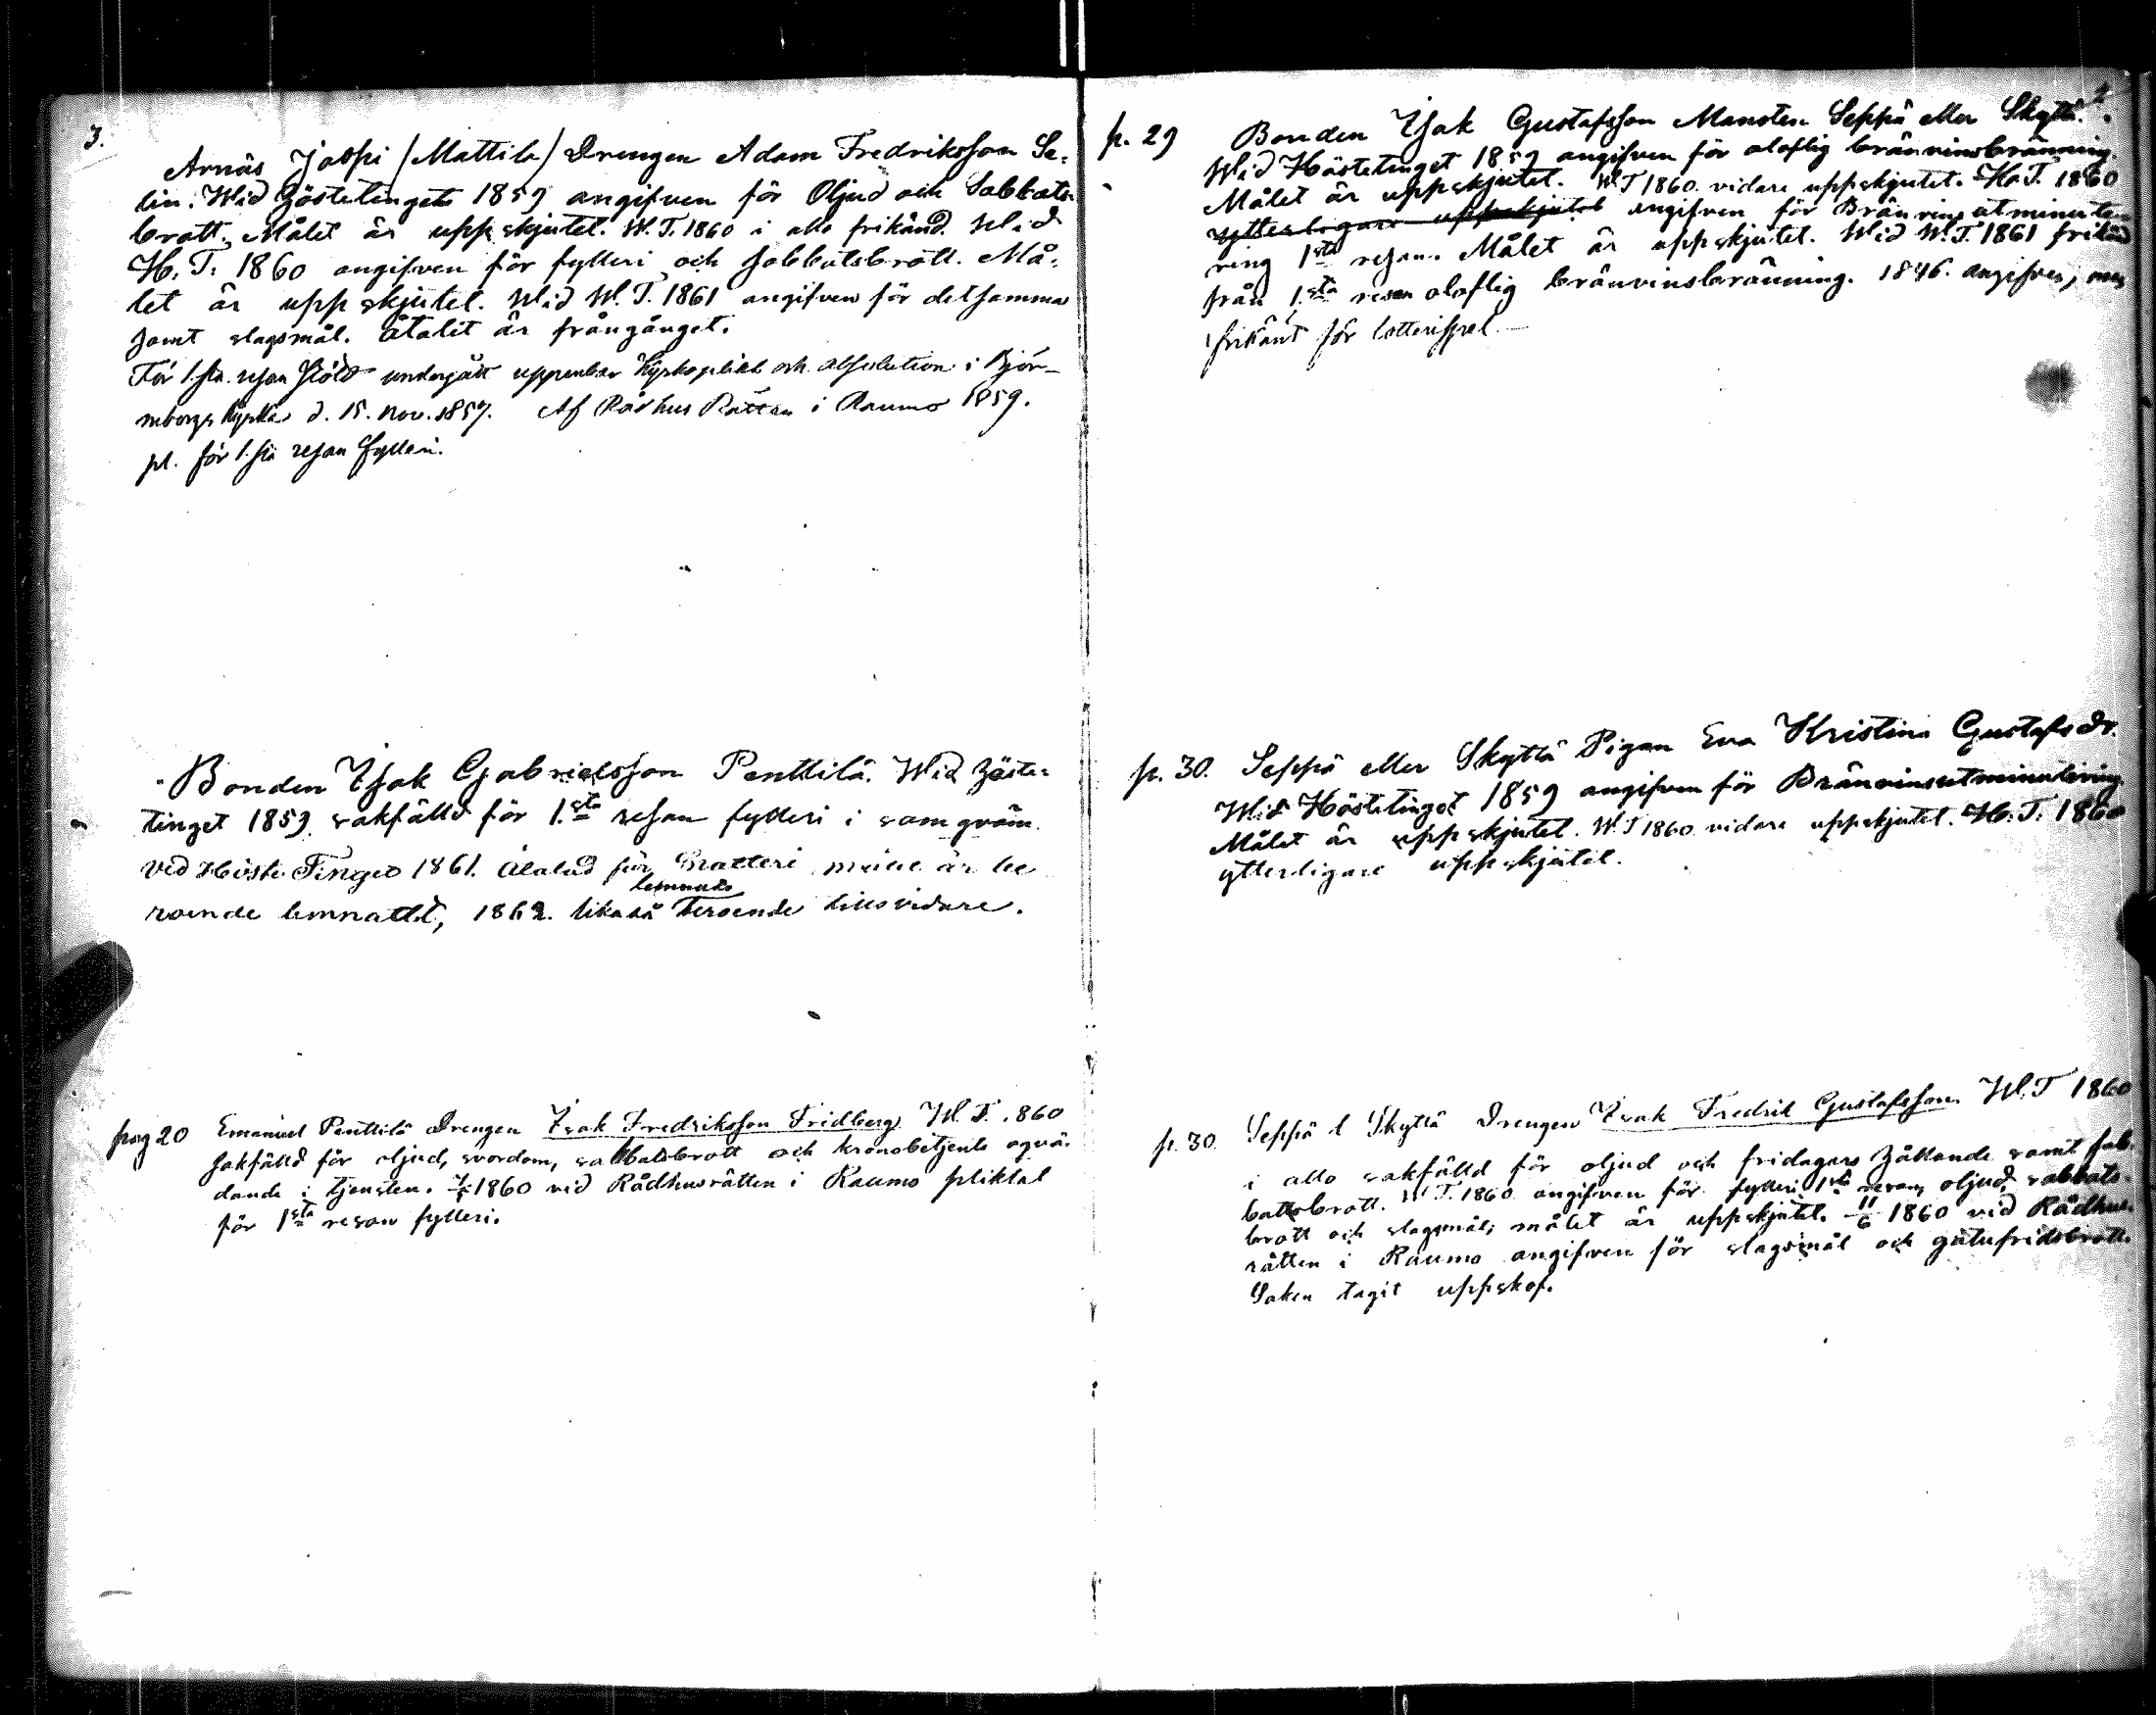 3.
Arnäs Jaspi /Mattila/ Drengen Adam Fredriksson Se-
lin. Wid Höstetinget 1859 angifven för Oljud och Sabbats-
brott. Målet är uppskjutet. W.T. 1860 i allo frikänd. Wid
H. T. 1860 angifven för fylleri och sabbatsbrott. Må-
let är uppskjutet. Wid W. T. 1861 angifven för detsamma
samt slagsmål. åtalet är frångånget.
För 1.sta resan stöld undergått uppenbar Kyrkoplikt och absolution i Björ-
neborgs Kyrka d. 15. Nov. 1857. Af Rådhus Rätten i Raumo 1859.
pl. för 1.sta resan fylleri.
Bonden Isak Gabrielsson Penttilä. Wid Höste-
tinget 1859 sakfälld för 1.sta resan fylleri i samqväm
ved Höste Tinget 1861. Åtalad för målet är be
roende lemnadt, 1862. likaså lemnats beroende tillsvidare.
pag 20 Emanuel Penttilä Drengen Isak Fredriksson Fridberg W. T. 1860
sakfälld för oljud, svordom, sabbatsbrott och kronobetjents oqvä-
dande i tjensten. 1860 vid Rådhusrätten i Raumo pliktat
för 1sta resan fylleri.
p. 29 Bonden Isak Gustafsson Mansten Seppä eller Skyttä.
Wid Höstetinget 1859 angifven för olaflig bränvinsbränning.
Målet är uppskjutet. W.T 1860 vidare uppskjutet. H.T. 1860
ytterligare uppskjutet angifven för Bränvins utminute-
ring 1sta resan. Målet är uppskjutet. Wid W.T. 1861 frikänd
från 1.sta resan olaflig bränvinsbränning. 1846. angifven, men
frikänt för lotterispel.
p. 30. Seppä eller Skyttä Pigan Eva Kristina Gustafsdr.
Wid Höstetinget 1859 angifven för Bränvinsutminutering
Målet är uppskjutet. W.T 1860 vidare uppskjutet. H.T. 1860
ytterligare uppskjutet.
p. 30. Seppä l Skyttä Drengen Isak Fredrik Gustafsson. W.T 1860
i allo sakfälld för oljud och fridagars hållande samt sab-
batsbrott. W T. 1860 angifven för fylleri 1sta resan, oljud, sabbats-
brott och slagsmål; målet är uppskjutet. 11/6 1860 vid Rådhus-
rätten i Raumo angifven för slagsmål och gatufridsbrott.
Saken tagit uppskof.